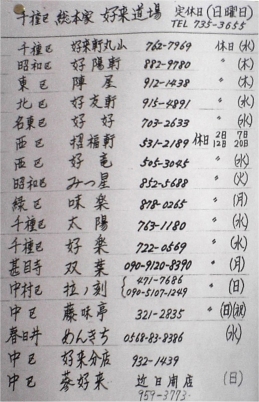 千種区 総本家 好来道場 定休日(日曜日)
TEL 735-3655
千種区 好来軒丸山 762-7969 休日(水)
昭和区 好陽軒 882-9780 〃(木)
東区 陣屋 912-1438 〃(木)
北区 好友軒 915-4891 〃(水)
名東区 好好 703-2633 〃(水)
西区 招福軒 531-2189 休日 2日 7日 12日 20日
西区 好竜 505-3045 〃(水)
昭和区 みつ星 852-5688 〃(火)
緑区 味楽 878-0265 〃(月)
千種区 太陽 763-1180 〃(水)
千種区 好楽 722-0569 〃(水)
甚目寺 双葉 090-9120-8390 〃(月)
中村区 拉ノ刻 471-7686 090-5107-1249 〃(日)
中区 藤味亭 321-2835 〃(日)(祝)
春日井 めんきち 0568-83-8386 (水)
中区 好来分店 932-1439
中区 蓉好来 近日開店 (日)
959-3773